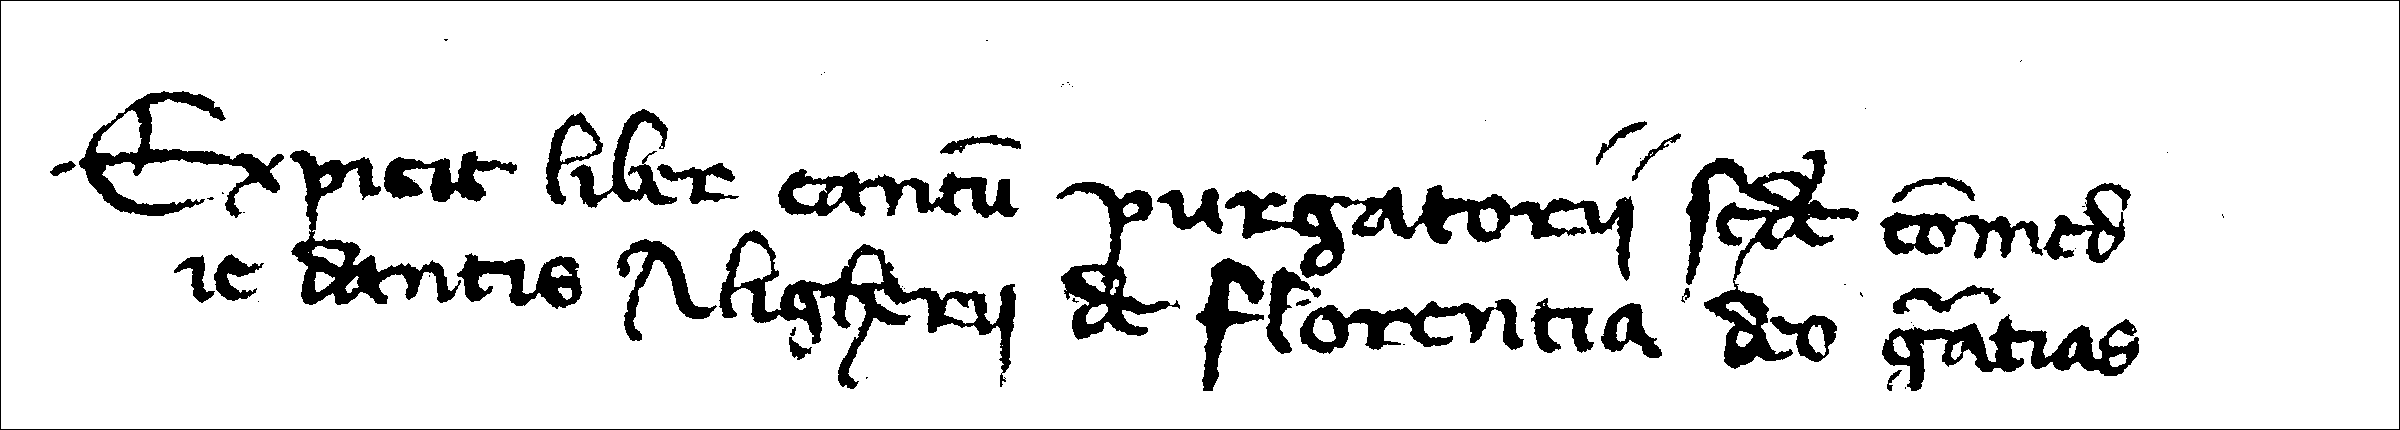 Expicit liber cantū purgatorii scd̄e com̄ed
ie dantis Aligherii de florentia deo gr̄atias